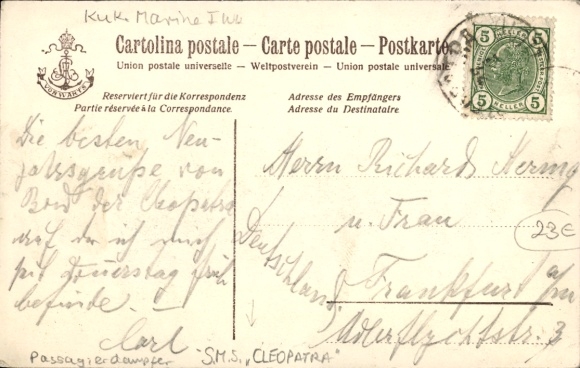 KuK. Marine I WW
Cartolina postale – Carte postale – Postkarte
Union postale universelle – Weltpostverein – Union postale universale
VORWÄRTS
Reserviert für die Korrespondenz
Partie réservée à la Correspondance.
Adresse des Empfängers
Adresse du Destinataire
5 HELLER 5
5 HELLER 5
Die besten Neu-
jahrsgrüße von
Bord der Cleopatra
auf der ich mich
seit Donnerstag früh
befinde. –
Carl
Herrn Richard Hering
u. Frau
Frankfurt a/m
Deutschland.
Adlerflychtstr. 3
23€
Passagierdampfer S.M.S. „CLEOPATRA"